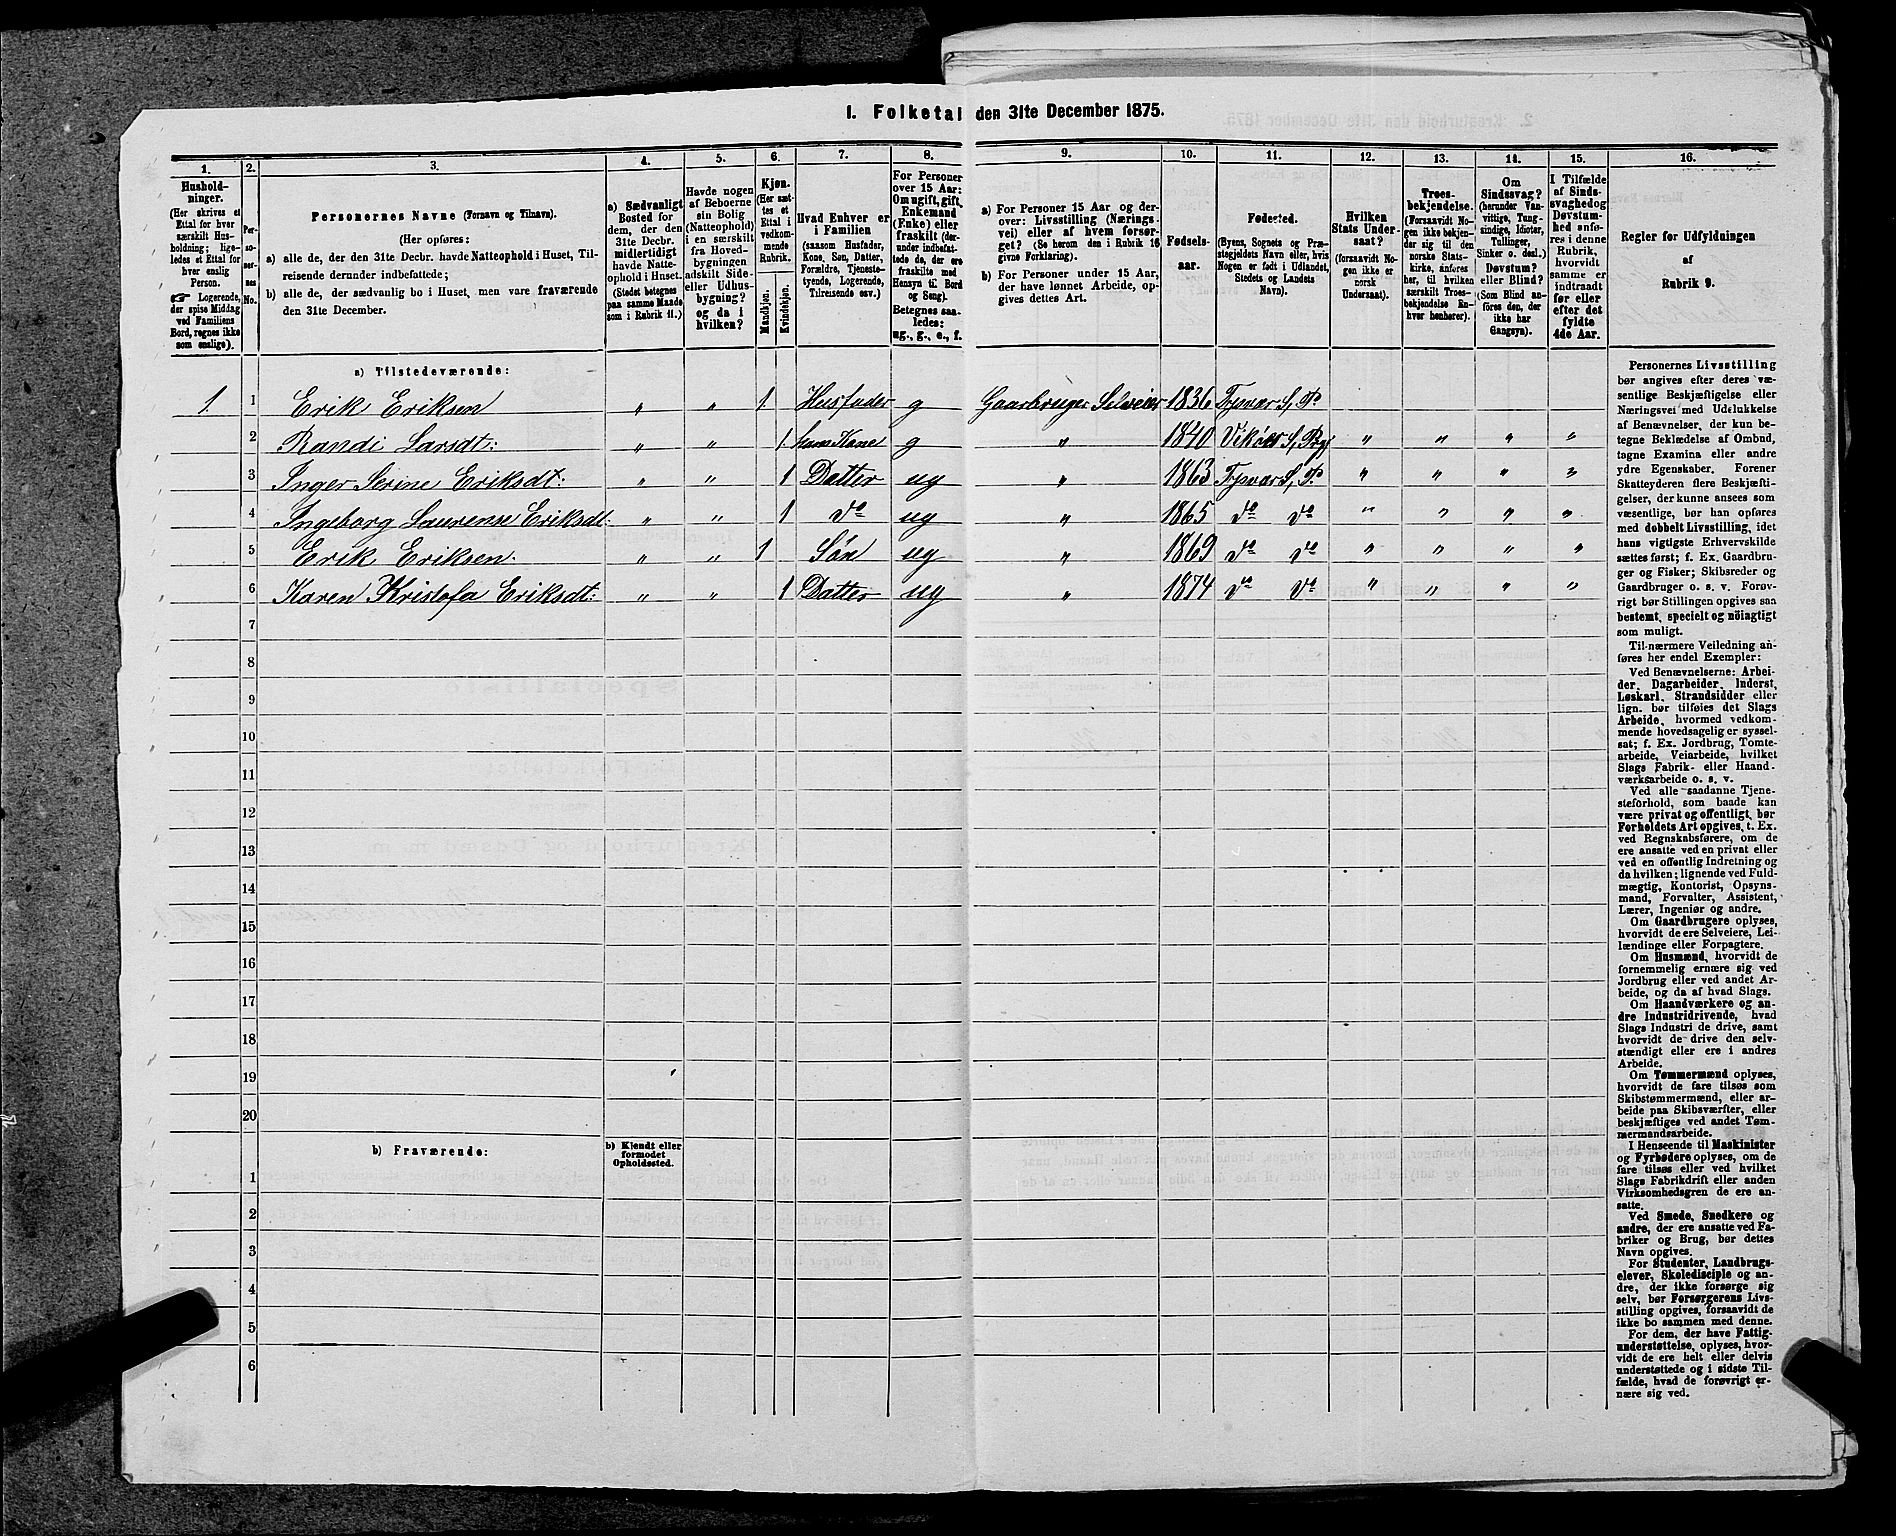 1. Folketal den 31te December 1875.
1. 2. 3. 4. 5. 6. 7. 8. 9. 10. 11. 12. 13. 14. 15. 16.
Hushold-
ninger.
(Her skrives et
Ettal for hver
særskilt Hus-
holdning; lige-
ledes et Ettal for
hver enslig
Person.
☞ Logerende,
der spise Middag
ved Familiens
Bord, regnes ikke
som enslige).
Per-
so-
ner-
nes
No.
Personernes Navne (Fornavn og Tilnavn).
(Her opføres:
a) alle de, der den 31te Decbr. havde Natteophold i Huset, Til-
reisende derunder indbefattede;
b) alle de, der sædvanlig bo i Huset, men vare fraværende
den 31te December.
a) Sædvanligt
Bosted for
dem, der den
31te Decbr.
midlertidigt
havde Natte-
ophold i Huset.
(Stedet betegnes
paa samme Maade
som i Rubrik 11.)
Havde nogen
af Beboerne
sin Bolig
(Natteophold)
i en særskilt
fra Hoved-
bygningen
adskilt Side-
eller Udhus-
bygning?
og da i
hvilken?
Kjøn.
(Her sæt-
tes et
Ettal i
vedkom-
mende
Rubrik.
Mandkjøn.
Kvindekjøn.
Hvad Enhver er
i Familien
(saasom Husfader,
Kone, Søn, Datter,
Forældre, Tjeneste-
tyende, Logerende,
Tilreisende osv.)
For Personer
over 15 Aar:
Om ugift, gift,
Enkemand
(Enke) eller
fraskilt (der-
under indbefat-
tede de, der ere
fraskilte med
Hensyn til Bord
og Seng).
Betegnes saa-
ledes:
ug., g., e., f.
a) For Personer 15 Aar og der-
over: Livsstilling (Nærings-
vei) eller af hvem forsør-
get? (Se herom den i Rubrik 16
givne Forklaring).
b) For Personer under 15 Aar,
der have lønnet Arbeide, op-
gives dettes Art.
Fødsels-
aar.
Fødested.
(Byens, Sognets og Præ-
stegjeldets Navn eller, hvis
Nogen er født i Udlandet,
Stedets og Landets
Navn).
Hvilken
Stats Under-
saat?
(forsaavidt No-
gen ikke er
norsk
Undersaat).
Troes-
bekjendelse.
(Forsaavidt No-
gen ikke bekjen-
der sig til den
norske Stats-
kirke, anføres
her, til hvilken
særskilt Troes-
bekjendelse En-
hver henhører).
Om
Sindssvag?
(herunder Van-
vittige, Tung-
sindige, Idioter,
Tullinger,
Sinker o. desl.)
Døvstum?
eller Blind?
(Som Blind an-
føres den, der
ikke har
Gangsyn).
I Tilfælde
af Sinds-
svaghed og
Døvstum-
hed anfø-
res i denne
Rubrik,
hvorvidt
samme er
indtraadt
før eller
efter det
fyldte
4de Aar.
Regler for Udfyldningen
af
Rubrik 9.
a) Tilstedeværende:
1. 1 Erik Eriksen „ „ 1 Husfader g Gaardbruger Selveier 1836 Tysvær S, P.
2 Randi Larsdt: „ „ 1 hans Kone g „ 1840 Vikørs S, Prgj „ „ „ „
3 Inger Serine Eriksdt: „ „ 1 Datter ug „ 1863 Tysvær S, P. „ „ „ „
4 Ingeborg Laurense Eriksdt: „ „ 1 do ug „ 1865 do do „ „ „ „
5 Erik Eriksen. „ „ 1 Søn ug „ 1869 do do „ „ „ „
6 Karen Kristofa Eriksdt: „ „ 1 Datter ug „ 1874 do do „ „ „ „
7
8
9
10
11
12
13
14
15
16
17
18
19
20
b) Fraværende:
b) Kjendt eller
formodet
Opholdssted.
1
2
3
4
5
6
Personernes Livsstilling
bør angives efter deres væ-
sentlige Beskjæftigelse eller
Næringsvei med Udelukkelse
af Benævnelser, der kun be-
tegne Beklædelse af Ombud,
tagne Examina eller andre
ydre Egenskaber. Forener
Skatteyderen flere Beskjæfti-
gelser, der kunne ansees som
væsentlige, bør han opføres
med dobbelt Livsstilling, idet
hans vigtigste Erhvervskilde
sættes først; f. Ex. Gaardbru-
ger og Fisker; Skibsreder og
Gaardbruger o. s. v. Forøv-
rigt bør Stillingen opgives saa
bestemt, specielt og nöiagtigt
som muligt.
Til nærmere Veiledning an-
føres her endel Exempler:
Ved Benævnelserne: Arbei-
der, Dagarbeider, Inderst,
Løskarl, Strandsidder eller
lign. bør tilføies det Slags
Arbeide, hvormed vedkom-
mende hovedsagelig er syssel-
sat; f. Ex. Jordbrug, Tomte-
arbeide, Veiarbeide, hvilket
Slags Fabrik- eller Haand-
værksarbeide o. s. v.
Ved alle saadanne Tjene-
steforhold, som baade kan
være privat og offentligt, bør
Forholdets Art opgives, t. Ex.
ved Regnskabsførere, om de
ere ansatte ved en privat eller
ved en offentlig Indretning og
da hvilken; lignende ved Fuld-
mægtig, Kontorist, Opsyns-
mand, Forvalter, Assistent,
Lærer, Ingeniør og andre.
Om Gaardbrugere oplyses,
hvorvidt de ere Selveiere, Lei-
lændinge eller Forpagtere.
Om Husmænd, hvorvidt de
fornemmelig ernære sig ved
Jordbrug eller ved andet Ar-
beide, og da af hvad Slags.
Om Haandværkere og an-
dre Industridrivende, hvad
Slags Industri de drive, samt
hvorvidt de drive den selv-
stændigt eller ere i andres
Arbeide.
Om Tømmermænd oplyses,
hvorvidt de fare tilsøs som
Skibstømmermænd, eller ar-
beide paa Skibsværfter, eller
beskjæftiges ved andet Tøm-
mermandsarbeide.
I Henseende til Maskinister
og Fyrbødere oplyses, om de
fare tilsøs eller ved hvilket
Slags Fabrikdrift eller anden
Virksomhedsgren de ere an-
satte.
Ved Smede, Snedkere og
andre, der ere ansatte ved Fa-
briker og Brug, bør dettes
Navn opgives.
For Studenter, Landbrugs-
elever, Skoledisciple og an-
dre, der ikke forsørge sig
selv, bør Forsørgerens Livs-
stilling opgives, forsaavidt de
ikke bo sammen med denne.
For dem, der have Fattig-
understøttelse, oplyses, hvor-
vidt de ere helt eller delvis
understøttede og i sidste Til-
fælde, hvad de forøvrigt er-
nære sig ved.